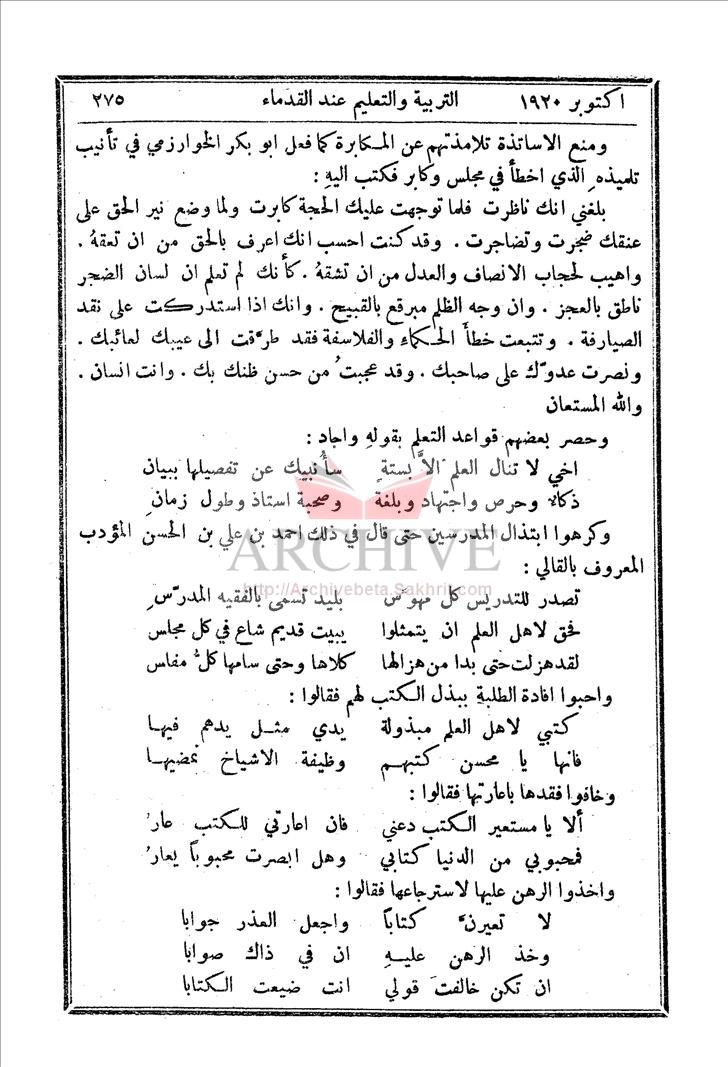 اكتوبر ١٩٢٠ التربية والتعليم عند القدماء ٢٧٥
ومنع الاساتذة تلامذتهم عن المكابرة كما فعل ابو بكر الخوارزمي في تأنيب
تلميذهِ الذي اخطأ في مجلس وكابر فكتب اليهِ :
بلغني انك ناظرت فلما توجهت عليك الحجة كابرت ولما وضع نير الحق على
عنقك ضجرت وتضاجرت . وقد كنت احسب انك اعرف بالحق من ان تعقهُ .
واهيب لحجاب الانصاف والعدل من ان تشقهُ . كأنك لم تعلم ان لسان الضجر
ناطق بالعجز . وان وجه الظلم مبرقع بالقبيح . وانك اذا استدركت على نقد
الصيارفة . وتتبعت خطأ الحكماء والفلاسفة فقد طرَّقت الى عيبك لعائبك .
ونصرت عدوّك على صاحبك . وقد عجبتُ من حسن ظنك بك . وانت انسان .
والله المستعان
وحصر بعضهم قواعد التعلم بقولهِ واجاد :
اخي لا تنال العلم الاَّ بستةٍ سأُنبيك عن تفصيلها ببيان
ذكاءٌ وحرص واجتهاد وبلغة وصحبة استاذ وطول زمانِ
وكرهوا ابتذال المدرسين حتى قال في ذلك احمد بن علي بن الحسن المؤدب
المعروف بالقالي :
ARCHIVE
http://Archivebeta.Sakhrit.com
تصدر للتدريس كل مهوّس بليد تسمى بالفقيه المدرّسِ
فحق لاهل العلم ان يتمثلوا يبيت قديم شاع في كل مجلس
لقد هزلت حتى بدا من هزالها كلاها وحتى سامها كلُّ مفاس
واحبوا افادة الطلبةِ ببذل الكتب لهم فقالوا :
كتبي لاهل العلم مبذولة يدي مثل يدهم فيها
فانها يا محسن كتبهم وظيفة الاشياخ نمضيها
وخافوا فقدها باعارتها فقالوا :
ألا يا مستعير الكتب دعني فان اعارتي للكتب عارُ
فمحبوبي من الدنيا كتابي وهل ابصرت محبوباً يعارُ
واخذوا الرهن عليها لاسترجاعها فقالوا :
لا تعيرنَّ كتاباً واجعل العذر جوابا
وخذ الرهن عليهِ ان في ذاك صوابا
ان تكن خالفتَ قولي انت ضيعت الكتابا